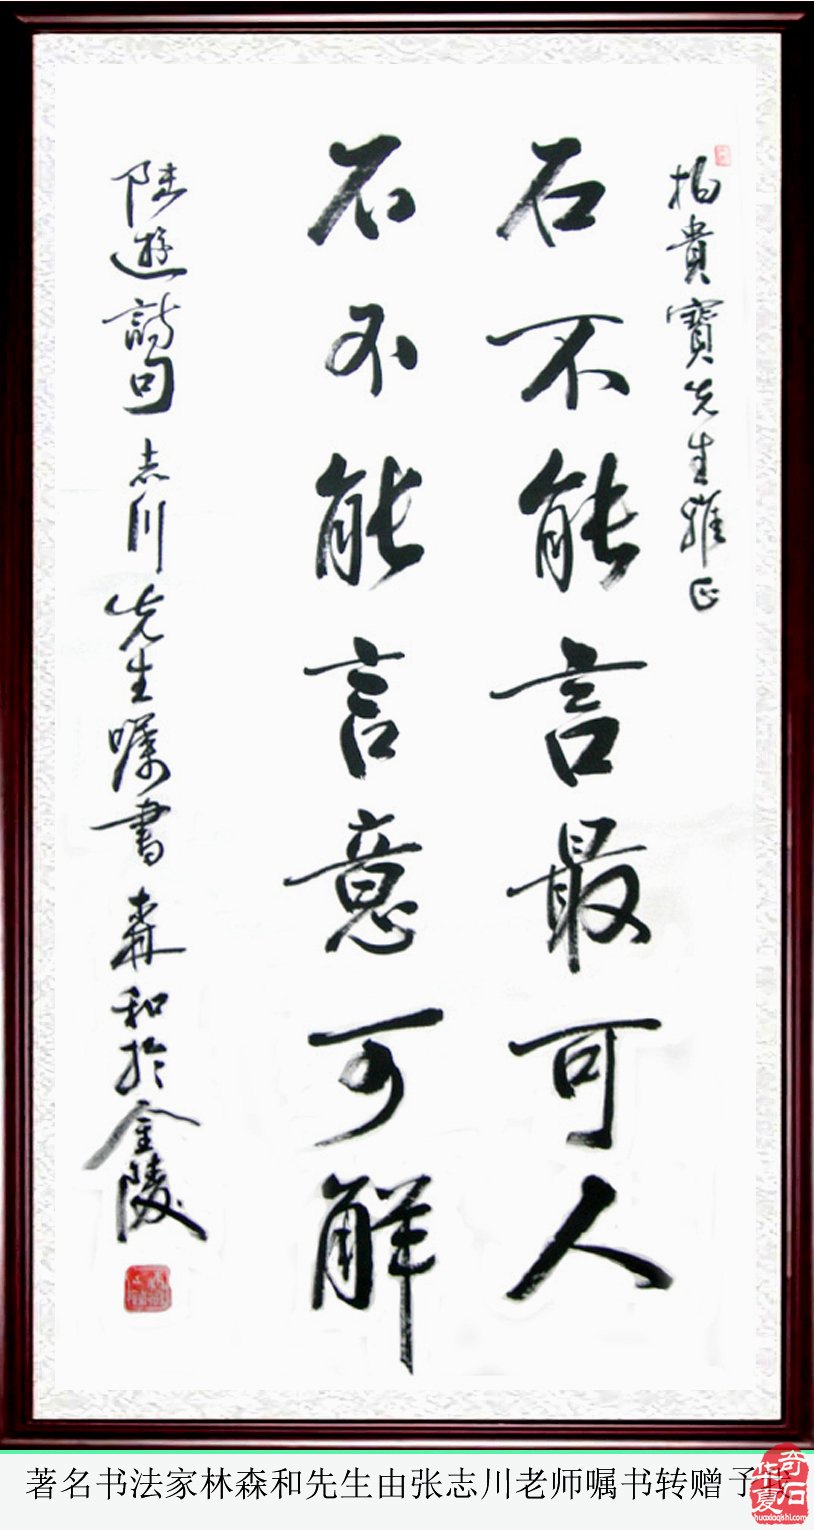 柏貴寶先生雅正
石不能言最可人
石不能言意可解
陸遊詩句 志川先生嘱書 森和於金陵
著名书法家林森和先生由张志川老师嘱书转赠予我
华夏奇石
huaxiaqishi.com